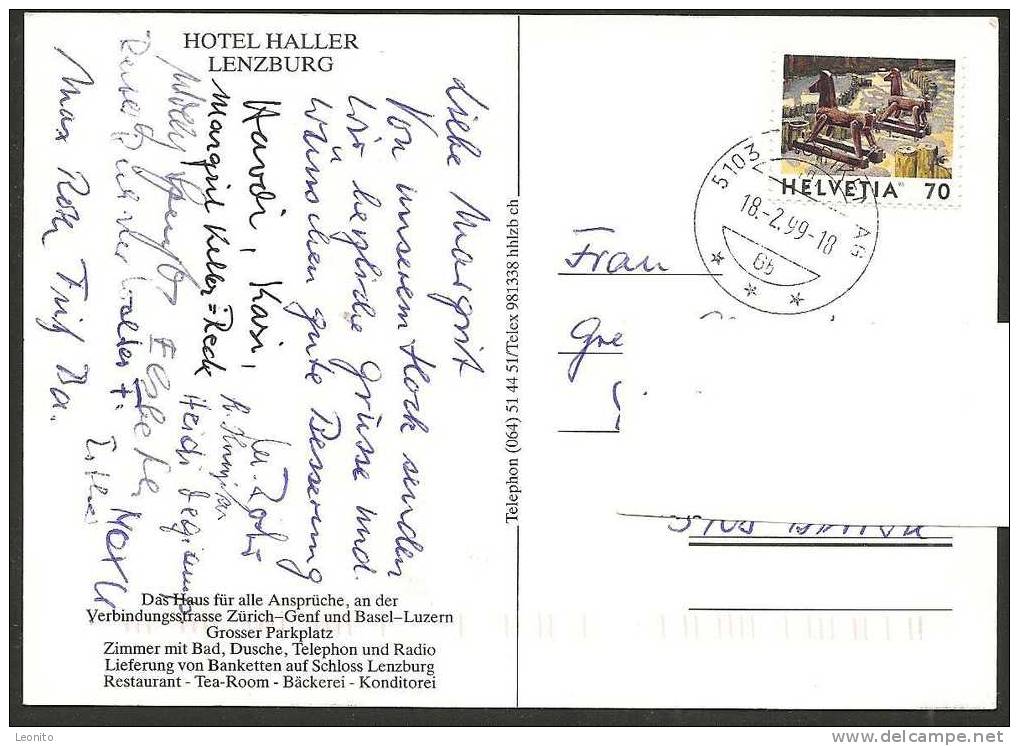 HOTEL HALLER
LENZBURG
Liebe Margrit
Von unserem Hock senden
wir herzliche Grüsse und
wünschen gute Besserung
Havdi, Kari,
Margrit Keller-Reck
Heidi
Elsbeth
Esther
Max Roth Fritz Ba.
Das Haus für alle Ansprüche, an der
Verbindungsstrasse Zürich–Genf und Basel–Luzern
Grosser Parkplatz
Zimmer mit Bad, Dusche, Telephon und Radio
Lieferung von Banketten auf Schloss Lenzburg
Restaurant - Tea-Room - Bäckerei - Konditorei
Telephon (064) 51 44 51/Telex 981338 hhlzb ch
HELVETIA 70
5103 AG
18.-2.99-18
6b
Frau
Gre
Leonito
www.delcampe.net